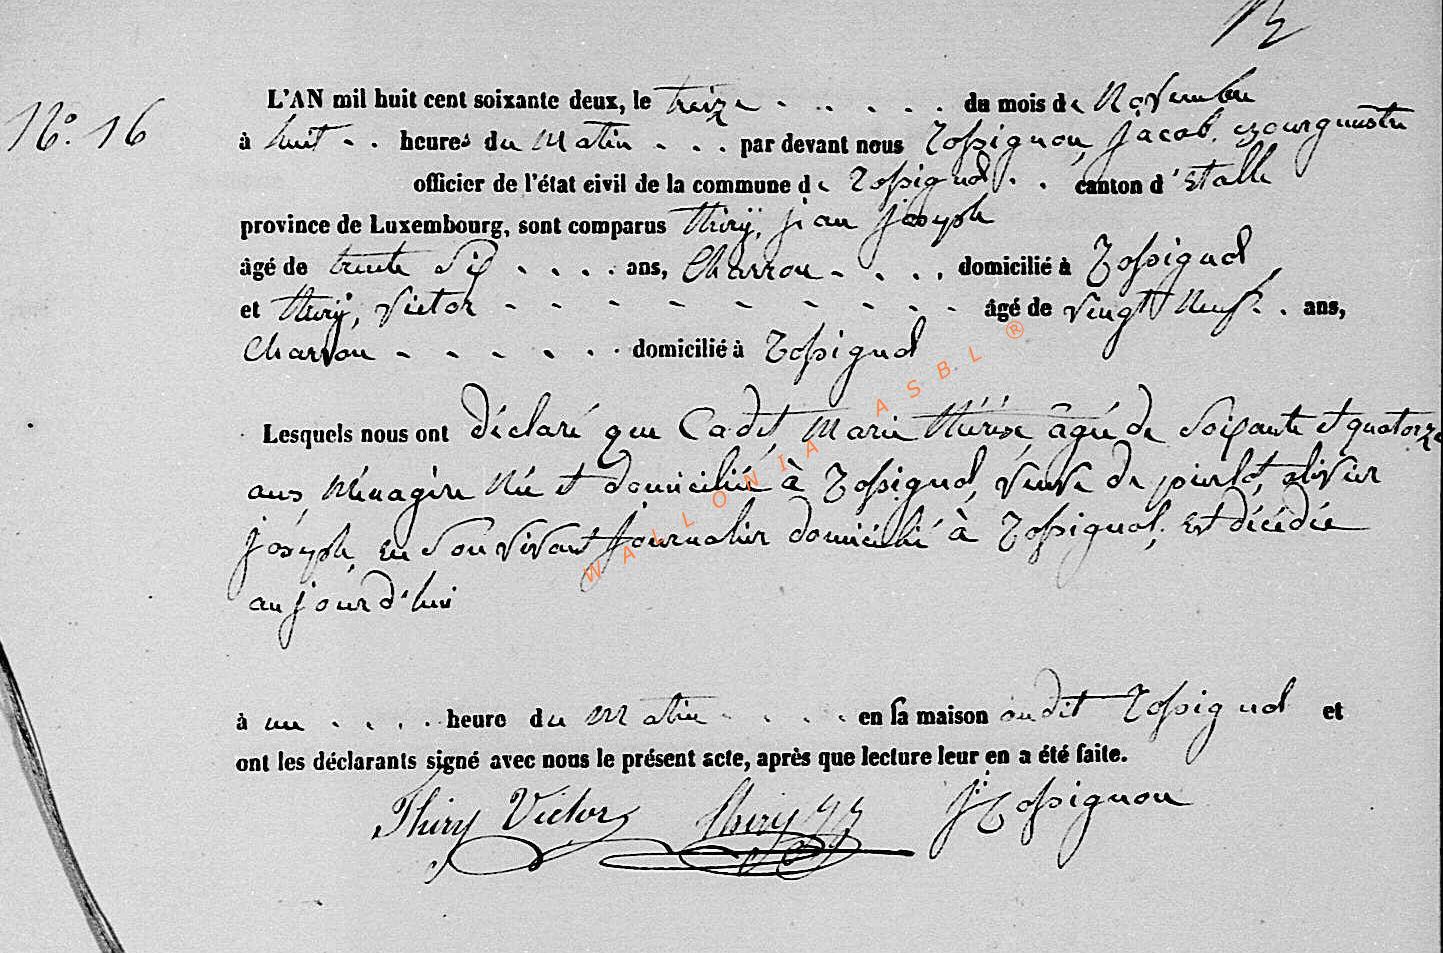 N° 16
L'AN mil huit cent soixante deux, le treize - - - - - du mois de Novembre
à huit - - heures du Matin - - - par devant nous Rossignon, jacob, bourgmestre
officier de l'état civil de la commune de Rossignol - - canton d'Etalle
province de Luxembourg, sont comparus thiry, jean joseph
âgé de trente six - - - - ans, Charron - - - - domicilié à Rossignol,
et thiry, victor - - - - - - - - - - - âgé de vingt neuf - - ans,
Charron - - - - - - domicilié à Rossignol
Lesquels nous ont déclaré que Cadet, Marie thérèse, âgée de soixante et quatorze
ans, Ménagère Née et domiciliée à Rossignol, veuve de pierlot, olivier
joseph, en son vivant journalier domicilié à Rossignol, est décédée
aujourd'hui
à un - - - - heure du Matin - - - - en sa maison audit Rossignol et
ont les déclarants signé avec nous le présent acte, après que lecture leur en a été faite.
Thiry Victor Thiry JJ J: Rossignon
WALLONIA ASBL ®